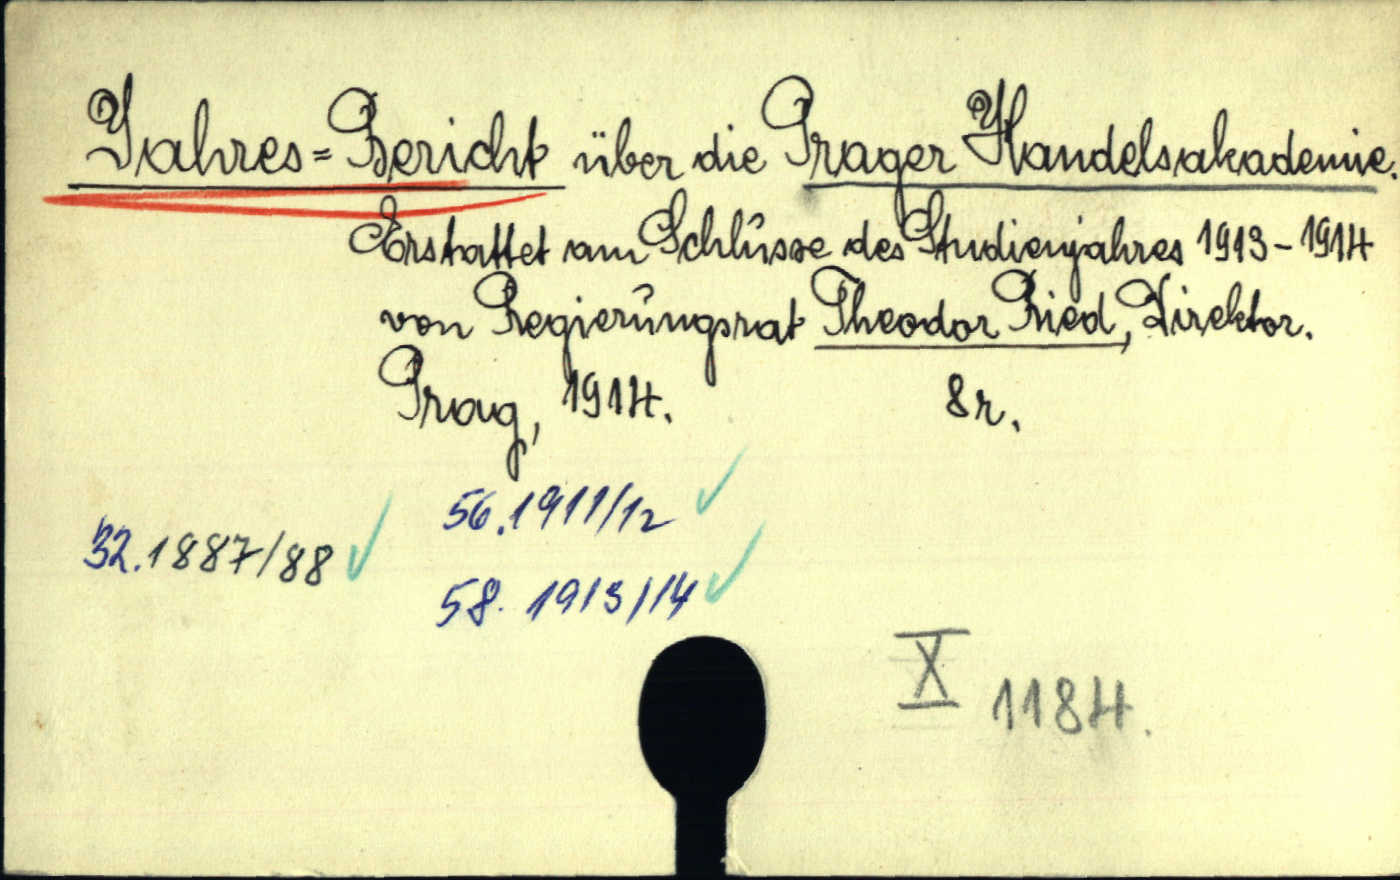 Jahres=Bericht über die Prager Handelsakademie.
Erstattet am Schlusse des Studienjahres 1913-1914
von Regierungsrat Theodor Ried, Direktor.
Prag, 1914. 8r.
56. 1911/12
32. 1887/88
58. 1913/14
X 1184.